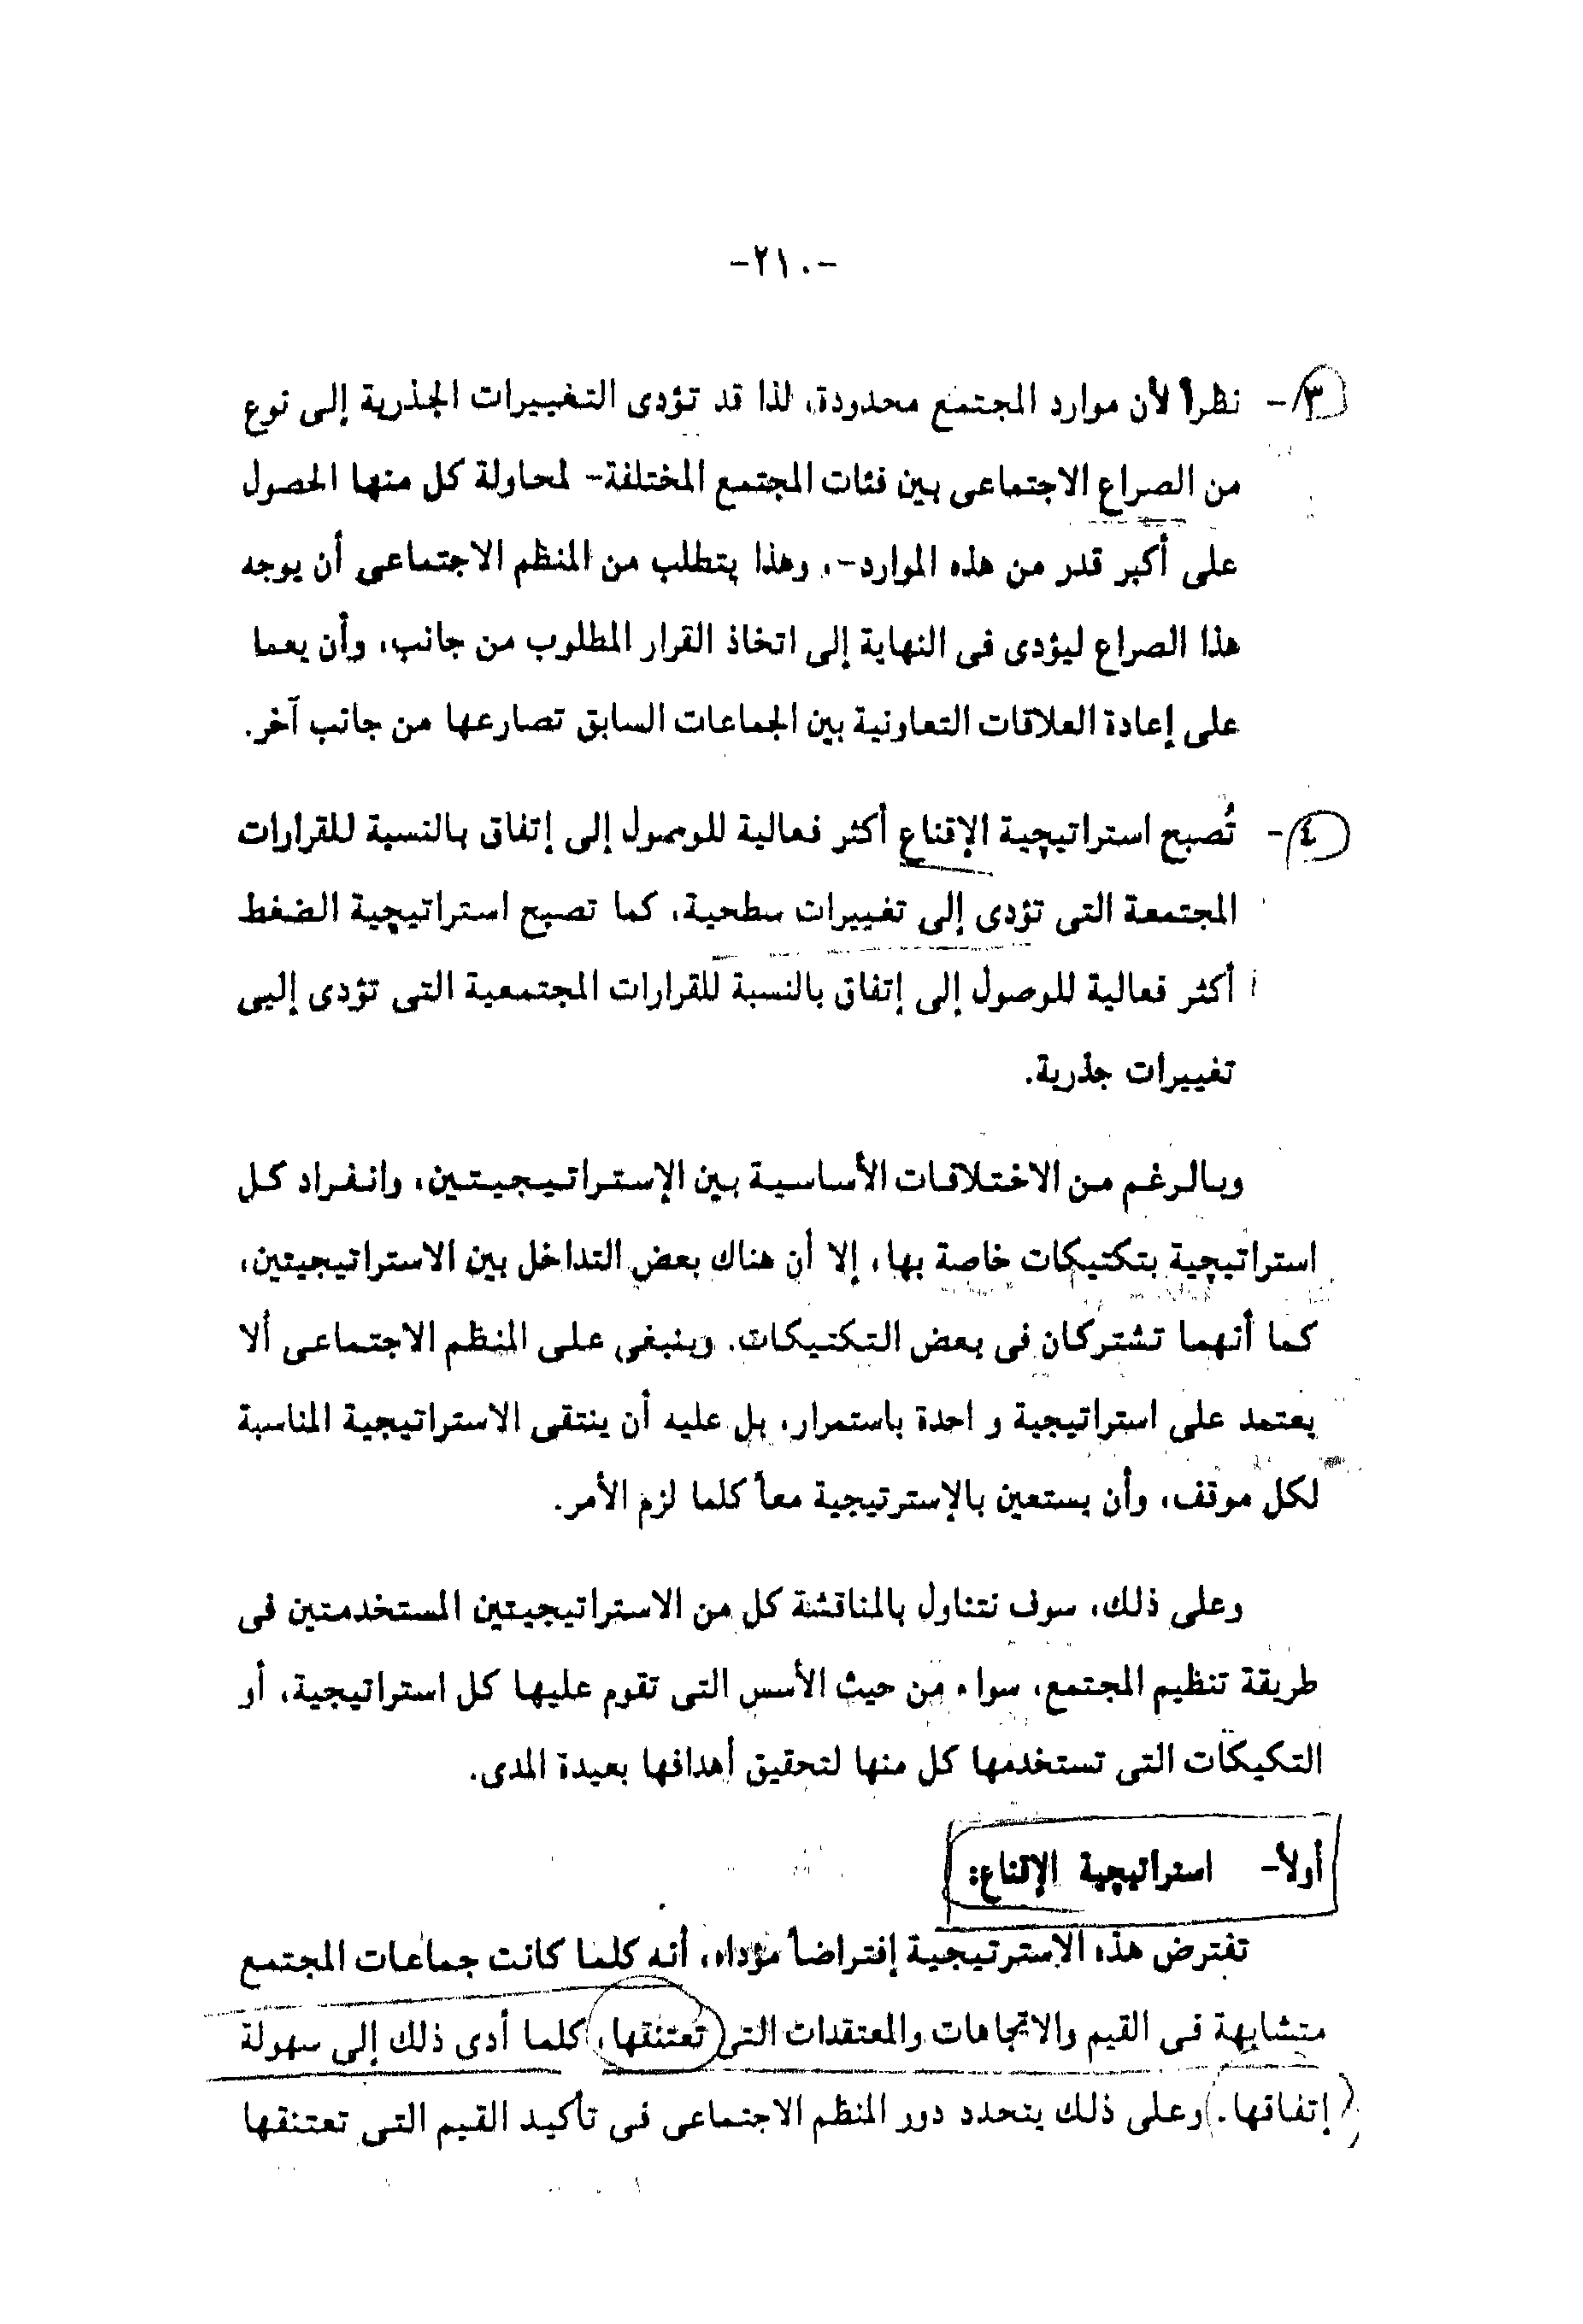 -٢١٠-
٣- نظراً لأن موارد المجتمع محدودة، لذا قد تؤدى التغييرات الجذرية إلى نوع
من الصراع الاجتماعى بين فئات المجتمع المختلفة- لمحاولة كل منها الحصول
على أكبر قدر من هذه الموارد-، وهذا يتطلب من المنظم الاجتماعى أن يوجه
هذا الصراع ليؤدى فى النهاية إلى اتخاذ القرار المطلوب من جانب، وأن يعما
على إعادة العلاقات التعاونية بين الجماعات السابق تصارعها من جانب آخر.
٤- تُصبح استراتيجية الإقناع أكثر فعالية للوصول إلى إتفاق بالنسبة للقرارات
المجتمعة التى تؤدى إلى تغييرات سطحية، كما تصبح استراتيجية الضغط
أكثر فعالية للوصول إلى إتفاق بالنسبة للقرارات المجتمعية التى تؤدى إليى
تغييرات جذرية.
وبالرغم من الاختلافات الأساسية بين الإستراتيجيتين، وانفراد كل
استراتيجية بتكتيكات خاصة بها، إلا أن هناك بعض التداخل بين الاستراتيجيتين،
كما أنهما تشتركان فى بعض التكتيكات. وينبغى على المنظم الاجتماعى ألا
يعتمد على استراتيجية و احدة باستمرار، بل عليه أن ينتقى الاستراتيجية المناسبة
لكل موقف، وأن يستعين بالإسترتيجية معاً كلما لزم الأمر.
وعلى ذلك، سوف نتناول بالمناقشة كل من الاستراتيجيتين المستخدمتين فى
طريقة تنظيم المجتمع، سواء من حيث الأسس التى تقوم عليها كل استراتيجية، أو
التكيكات التى تستخدمها كل منها لتحقيق أهدافها بعيدة المدى.
أولاً- استراتيجية الإقناع:
تفترض هذه الاسترتيجية إفتراضاً مؤداه، أنه كلما كانت جماعات المجتمع
متشابهة فى القيم والاتجاهات والمعتقدات التى تعتنقها، كلما أدى ذلك إلى سهولة
إتفاقها. وعلى ذلك يتحدد دور المنظم الاجتماعى فى تأكيد القيم التى تعتنقها